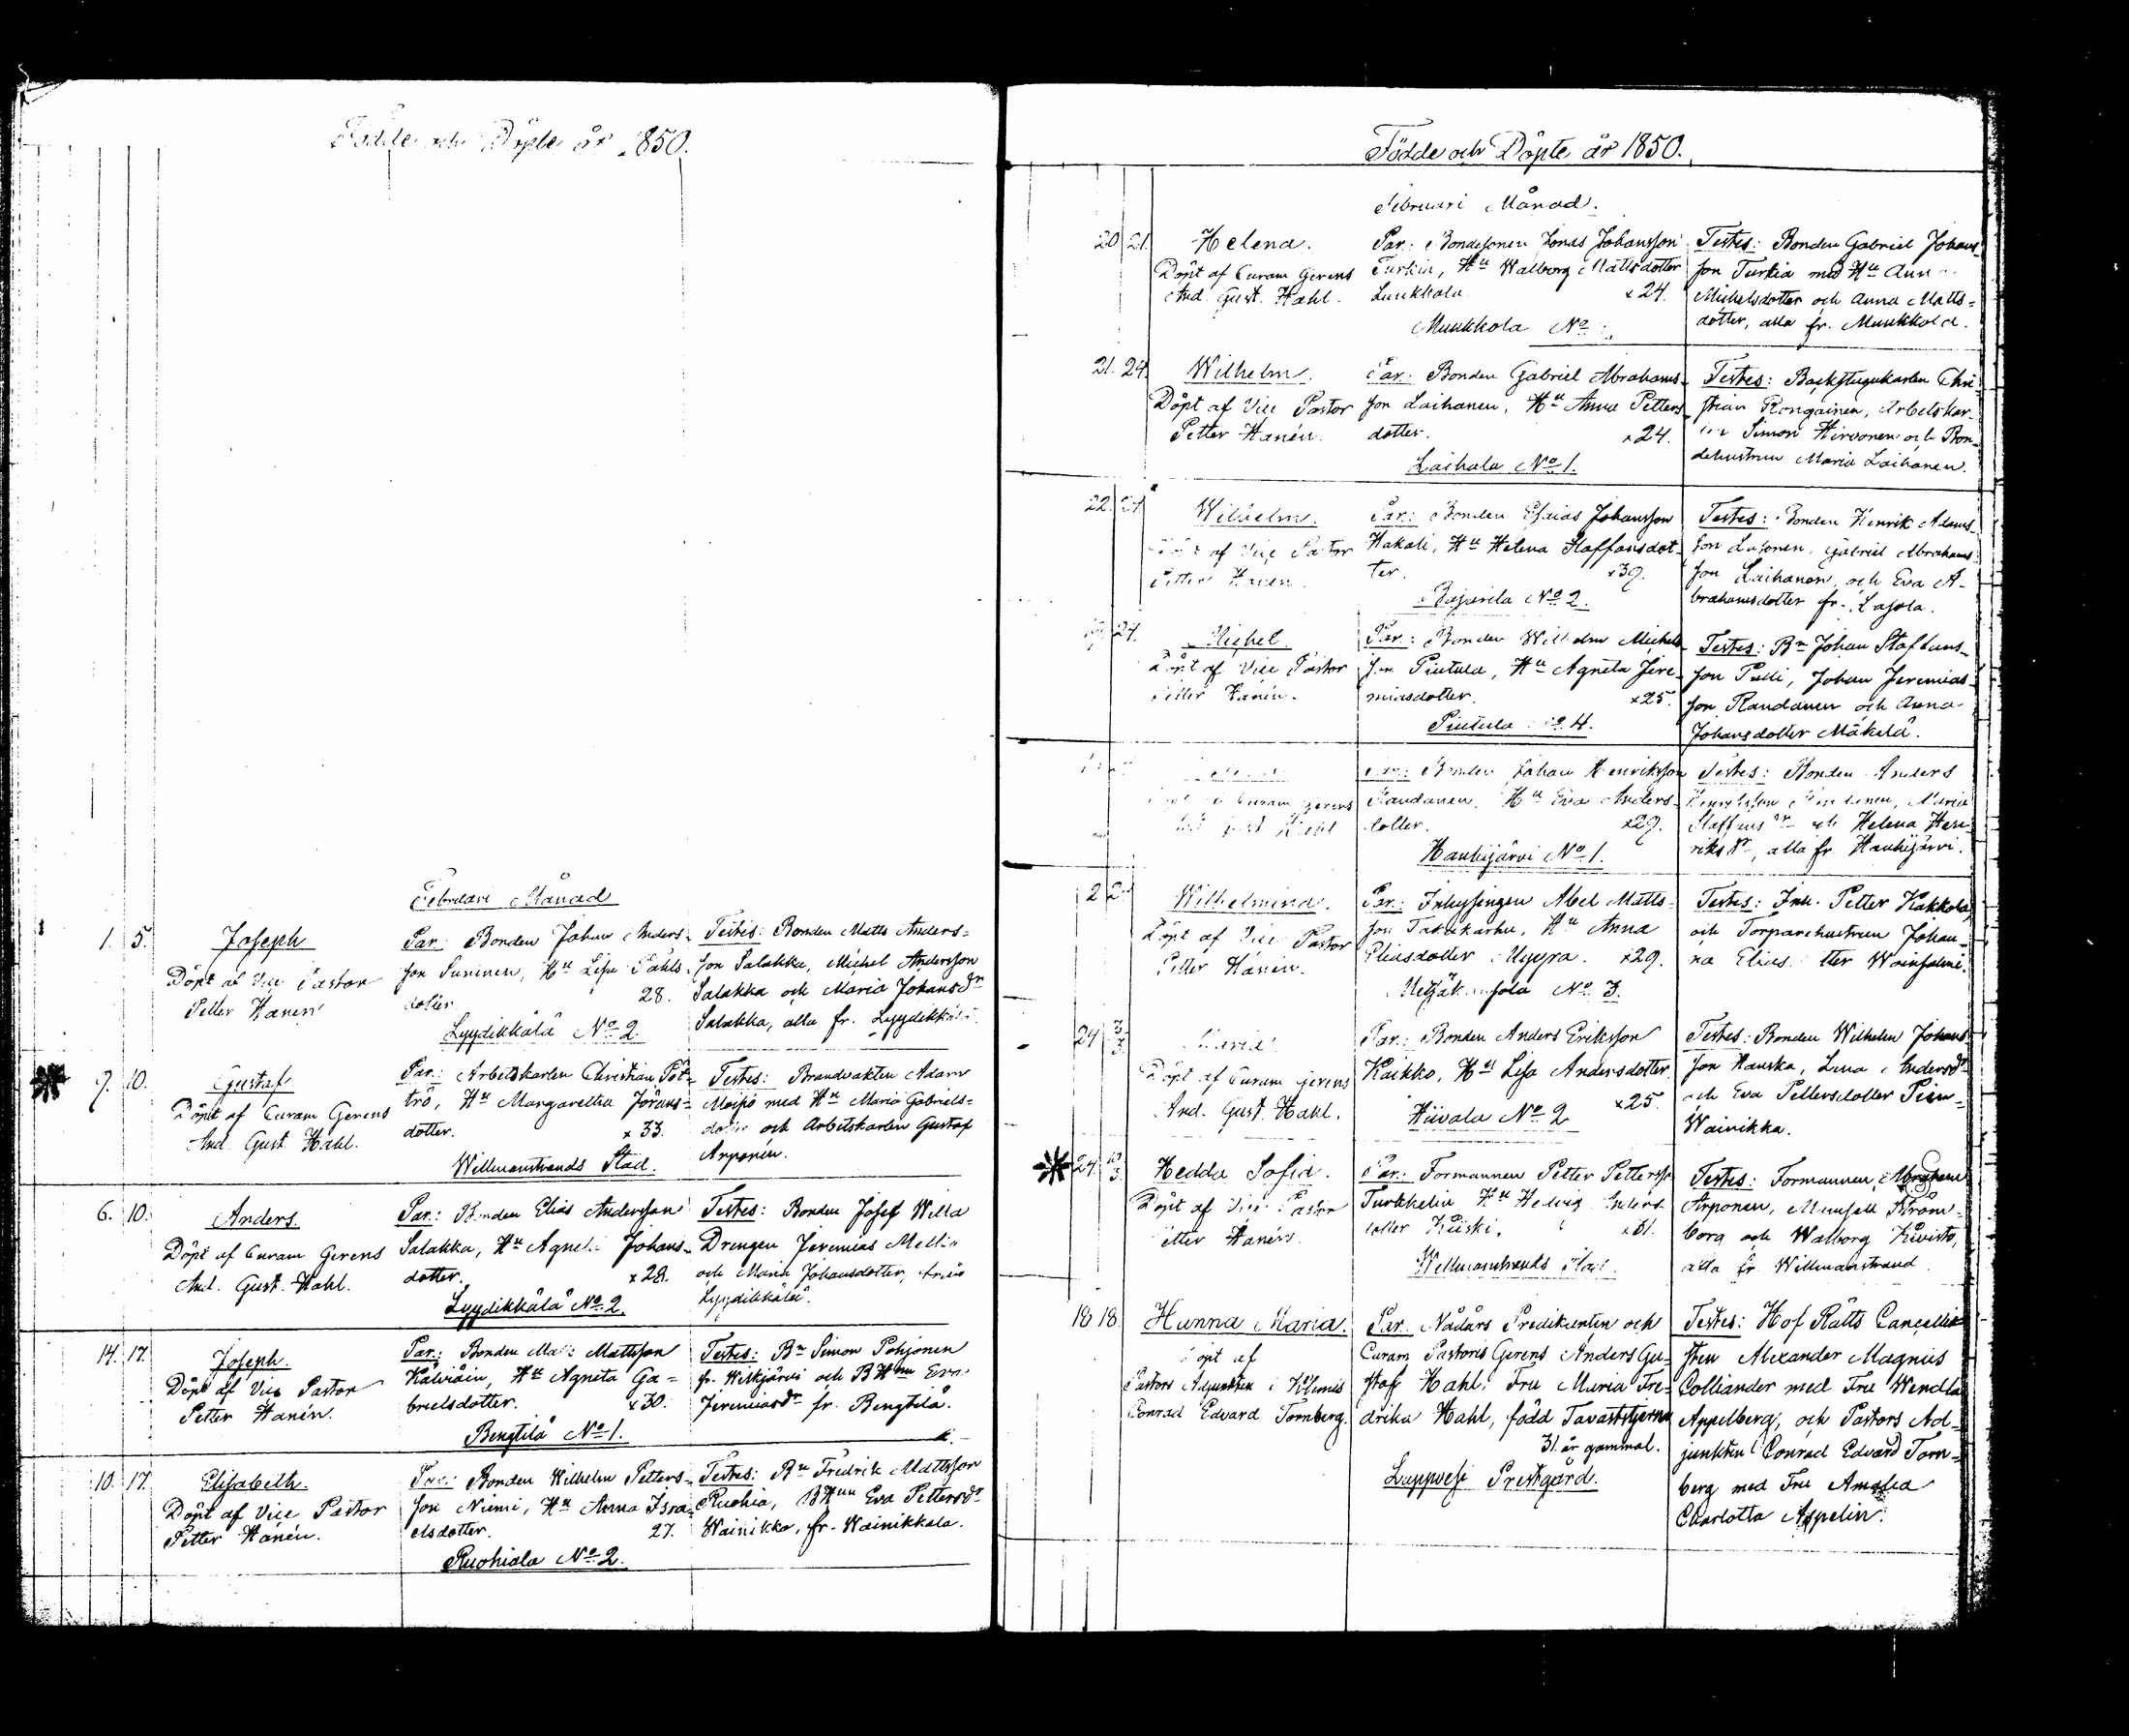 Födde och Döpte år 1850.
Februari Månad
1. 5. Joseph
Döpt af Vice Pastor
Petter Hanén
Par: Bonden Johan Anders-
son Suninen, Hu Lisa Påhls-
dotter 28.
Lyydikkälä No 2.
Testes: Bonden Matts Anders=
son Salakka, Michel Andersson
Salakka och Maria Johansdr
Salakka, alla fr. Lyydikkälä
7. 10. Gustaf
Döpt af Curam Gerens
And. Gust. Hahl.
Par: Arbetskarlen Christian Pöt-
trö, Hu Margaretha Jörans=
dotter. x 33.
Willmanstrands Stad.
Testes: Brandvakten Adam
Moipö med Hu Maria Gabriels=
dotter och Arbetskarlen Gustaf
Arponen.
6. 10. Anders.
Döpt af Curam Gerens
And. Gust. Hahl.
Par: Bonden Elias Andersson
Salakka, Hu Agneta Johans-
dotter. x 28.
Lyydikkälä No 2.
Testes: Bonden Josef Willa
Drengen Jeremias
och Maria Johansdotter,
Lyydikkälä.
14. 17. Joseph.
Döpt af Vice Pastor
Petter Hanén.
Par: Bonden Matts Mattsson
Kälviäin, Hu Agneta Ga=
brielsdotter. x 30.
Bengtilä No 1.
Testes: Bn Simon Pohjonen
fr. Wilkjärvi och BHun Eva
Jeremiasdr fr. Bengtilä.
10. 17. Elisabeth.
Döpt af Vice Pastor
Petter Hanén.
Par: Bonden Wilhelm Petters-
son Niemi, Hu Anna Isra-
elsdotter. 27.
Ruohiala No 2.
Testes: Bn Fredrik Mattsson
Ruohia, BHun Eva Pettersdr
Wainikka, fr. Wainikkala.
Födde och Döpte år 1850.
Februari Månad.
20 21. Helena.
Döpt af Curam Gerens
And. Gust. Hahl.
Par: Bondesonen Jonas Johansson
Turkia, Hu Walborg Mattsdotter
Luukkola x 24.
Muukkola No
Testes: Bonden Gabriel Johans-
son Turkia med Hu Anna
Michelsdotter och Anna Matts=
dotter, alla fr. Muukkola.
21. 24. Wilhelm.
Döpt af Vice Pastor
Petter Hanén.
Par: Bonden Gabriel Abrahams-
son Laihanen, Hu Anna Petters-
dotter. x 24.
Laihala No 1.
Testes: Backstugukarlen Chri-
stian Rongainen, Arbetskar-
len Simon Hirvonen och Bon-
dehustrun Maria Laihanen.
22. 24. Wilhelm.
Döpt af Vice Pastor
Petter Hanén.
Par: Bonden Esaias Johansson
Hakali, Hu Helena Staffansdot-
ter. x39.
Pajarila No 2.
Testes: Bonden Henrik Adams-
son Lasonen, Gabriel Abrahams-
son Laihanen, och Eva A-
brahamsdotter fr. Lasola.
24. Michel.
Döpt af Vice Pastor
Petter Hanén.
Par: Bonden Wilhelm Michels-
son Piutula, Hu Agneta Jere-
miasdotter. x25.
Piutula No 4.
Testes: Bn Johan Staffans-
son Pulli, Johan Jeremias-
son Raudanen och Anna
Johansdotter Mäkelä.
Döpt af Curam Gerens
Par: Bonden Johan Henriksson
Raudanen, Hu Eva Anders-
dotter. x29.
Hanhijärvi No 1.
Testes: Bonden Anders
Henriksson Raudanen, Maria
Staffansdr och Helena Hen-
riksdr, alla fr Hanhijärvi.
Wilhelmina.
Döpt af Vice Pastor
Petter Hanén.
Par: Inhysingen Abel Matts-
son Takakarhu, Hu Anna
Eliasdotter Myyra. x29.
No 3.
Testes: Inh. Petter Kakkola
och Torparehustrun Johan-
na Eliasdotter
24 3/3 Maria
Döpt af Curam Gerens
And. Gust. Hahl.
Par: Bonden Anders Eriksson
Kaikko, Hu Lisa Andersdotter
x25.
Hiivala No 2
Testes: Bonden Wilhelm Johans-
son Hanska, Lena Andersdr
och Eva Pettersdotter
Wainikka.
24. 3/3 Hedda Sofia.
Döpt af Vice Pastor
Petter Hanén.
Par: Formannen Petter Pettersson
Turkhelin Hu Hedvig Anders-
dotter Kiiski. x31.
Willmanstrands Stad.
Testes: Formannen Abraham
Arponen, Mamsell Ström-
borg och Walborg Kivistö,
alla fr Willmanstrand.
18 18. Hanna Maria.
Döpt af
Pastors Adjunkten i Klemis
Conrad Edvard Tornberg.
Par: Nådårs Predikanten och
Curam Pastoris Gerens Anders Gu-
staf Hahl, Fru Maria Fre-
drika Hahl, född Tavaststjerna
31. år gammal.
Lappvesi Prestgård.
Testes: Hof Rätts Cancellis-
ten Alexander Magnus
Colliander med Fru Wendla
Appelberg, och Pastors Ad-
junkten Conrad Edvard Torn-
berg med Fru Amalia
Charlotta Appelin.